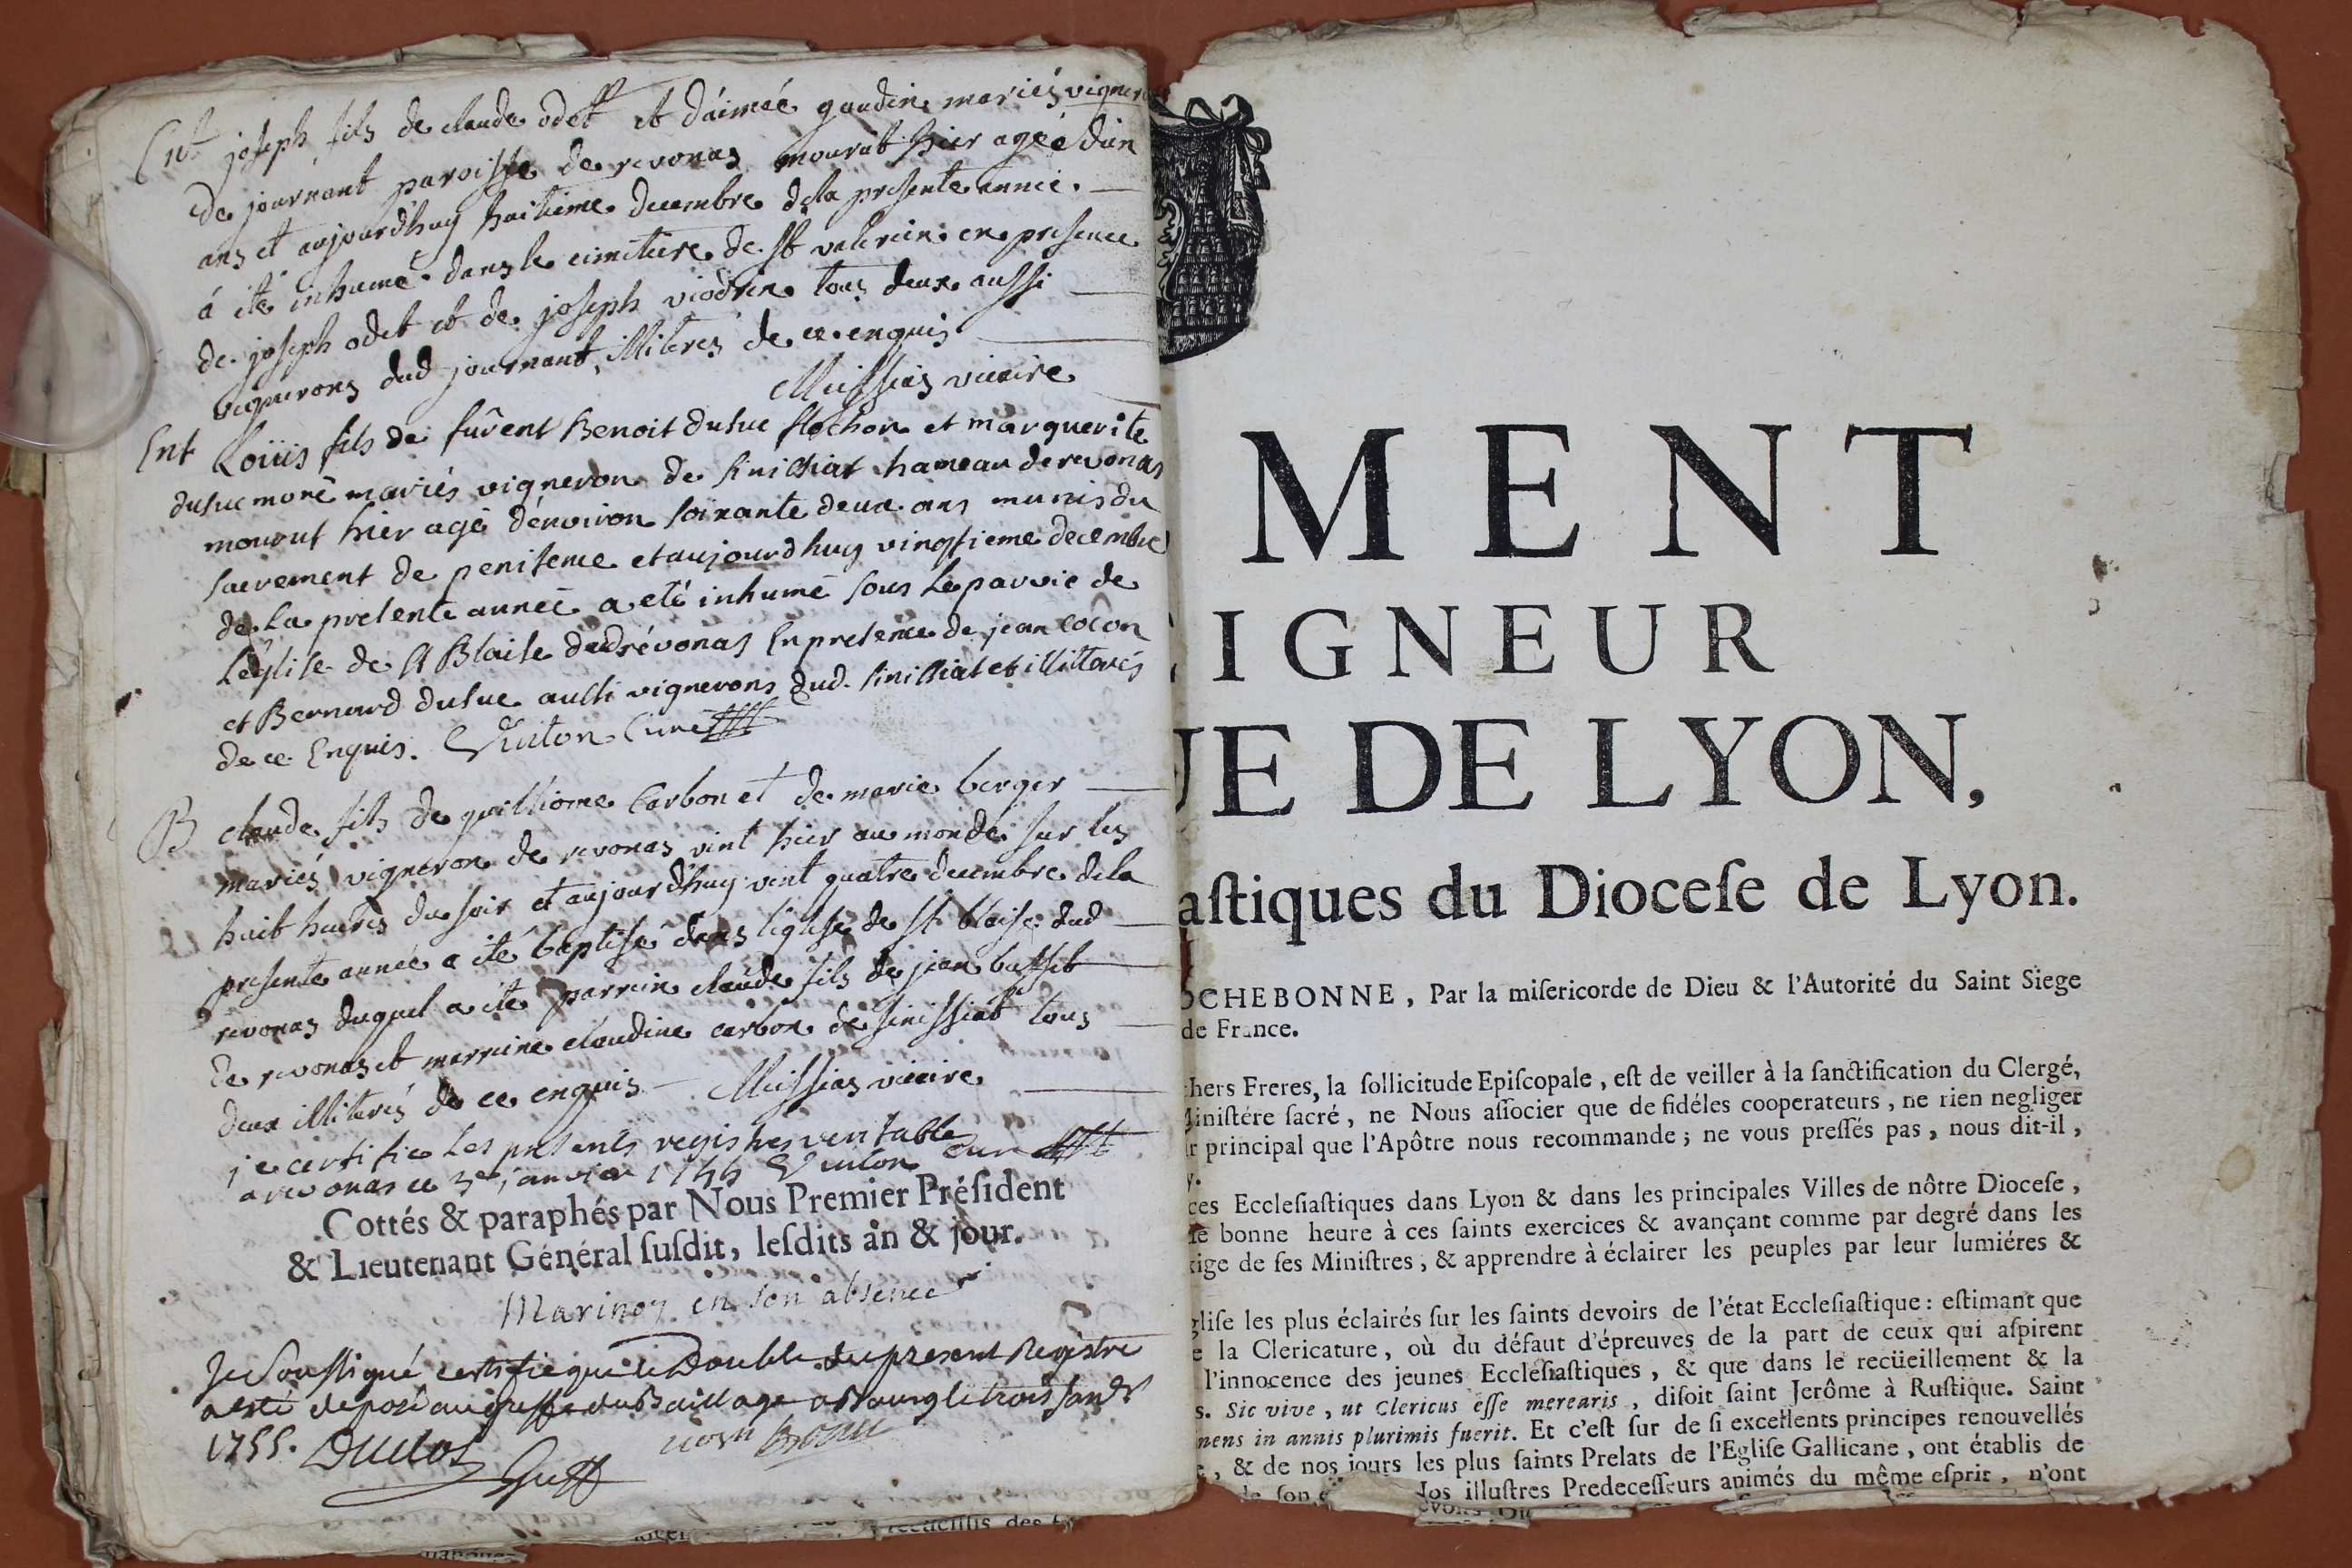 Ent joseph fils de claude odet et d'aimée gaudin mariés vigneron
de journant paroisse de revonas mourut hier agéé d'un
ans et aujourd'huy huitieme decembre de la presente année.
á été inhumé dans le cimitiere de st valerien en presence
de joseph odet et de joseph viodrin tous deux aussi
vignerons dud journant illiterés de ce enquis
Meissias vicaire
Ent Loüis fils de fûrent Benoit dusuc flochon et marguerite
dusuc moné mariés vigneron de sinissiat hameau de revonas
mourut hier agé d'environ soixante deux ans munis du
sacrement de penitence et aujourdhuy vingtieme decembre
de La presente année a eté inhumé sous Le parvic de
L'eglise de st Blaise dud révonas En presence de jean cocon
et Bernard dusuc aussi vignerons dud. sinissiat et illitterés
de ce Enquis. Vuiton Curé
B claude fils de guilliome Carbon et de marie berger
mariés vigneron de revonas vint hier au monde sur les
huit heures du soir et aujourd'huy vint quatre decembre de la
presente année a été baptisé dans l'iglise de st blaise dud
revonas duquel a été parrein claude fils de jean busset
de revonas et marreine claudine carbon de sinissiat tous
deux illiterés de ce enquis Meissias vicaire
je certifie Les presents registres veritable
a revonas ce 3e janvier 1755 Vuiton Curé
Cottés & paraphés par Nous Premier Préſident
& Lieutenant Général ſuſdit, leſdits an & jour.
Marinon en son absence
Je Soussigné certifie que le Double du present Registre
a esté deposé au greffe du Baillage a Bourg le trois janv
1755. Duclos
Greff
MENT
IGNEUR
UE DE LYON,
aſtiques du Dioceſe de Lyon.
OCHEBONNE, Par la miſericorde de Dieu & l'Autorité du Saint Siege
de France.
hers Freres, la ſollicitude Epiſcopale, eſt de veiller à la ſanctification du Clergé,
Miniſtére ſacré, ne Nous aſſocier que de fidéles cooperateurs, ne rien negliger
r principal que l'Apôtre nous recommande; ne vous preſſés pas, nous dit-il,
y.
ces Eccleſiaſtiques dans Lyon & dans les principales Villes de nôtre Dioceſe,
de bonne heure à ces ſaints exercices & avançant comme par degré dans les
xige de ſes Miniſtres, & apprendre à éclairer les peuples par leur lumiéres &
gliſe les plus éclairés ſur les ſaints devoirs de l'état Eccleſiaſtique: eſtimant que
e la Clericature, où du défaut d'épreuves de la part de ceux qui aſpirent
l'innocence des jeunes Eccleſiaſtiques, & que dans le recüeillement & la
s. Sic vive, ut Clericus eſſe merearis, diſoit ſaint Jerôme à Ruſtique. Saint
mens in annis plurimis fuerit. Et c'eſt ſur de ſi excellents principes renouvellés
, & de nos jours les plus ſaints Prelats de l'Egliſe Gallicane, ont établis de
de ſon Nos illuſtres Predeceſſeurs animés du même eſprit, n'ont